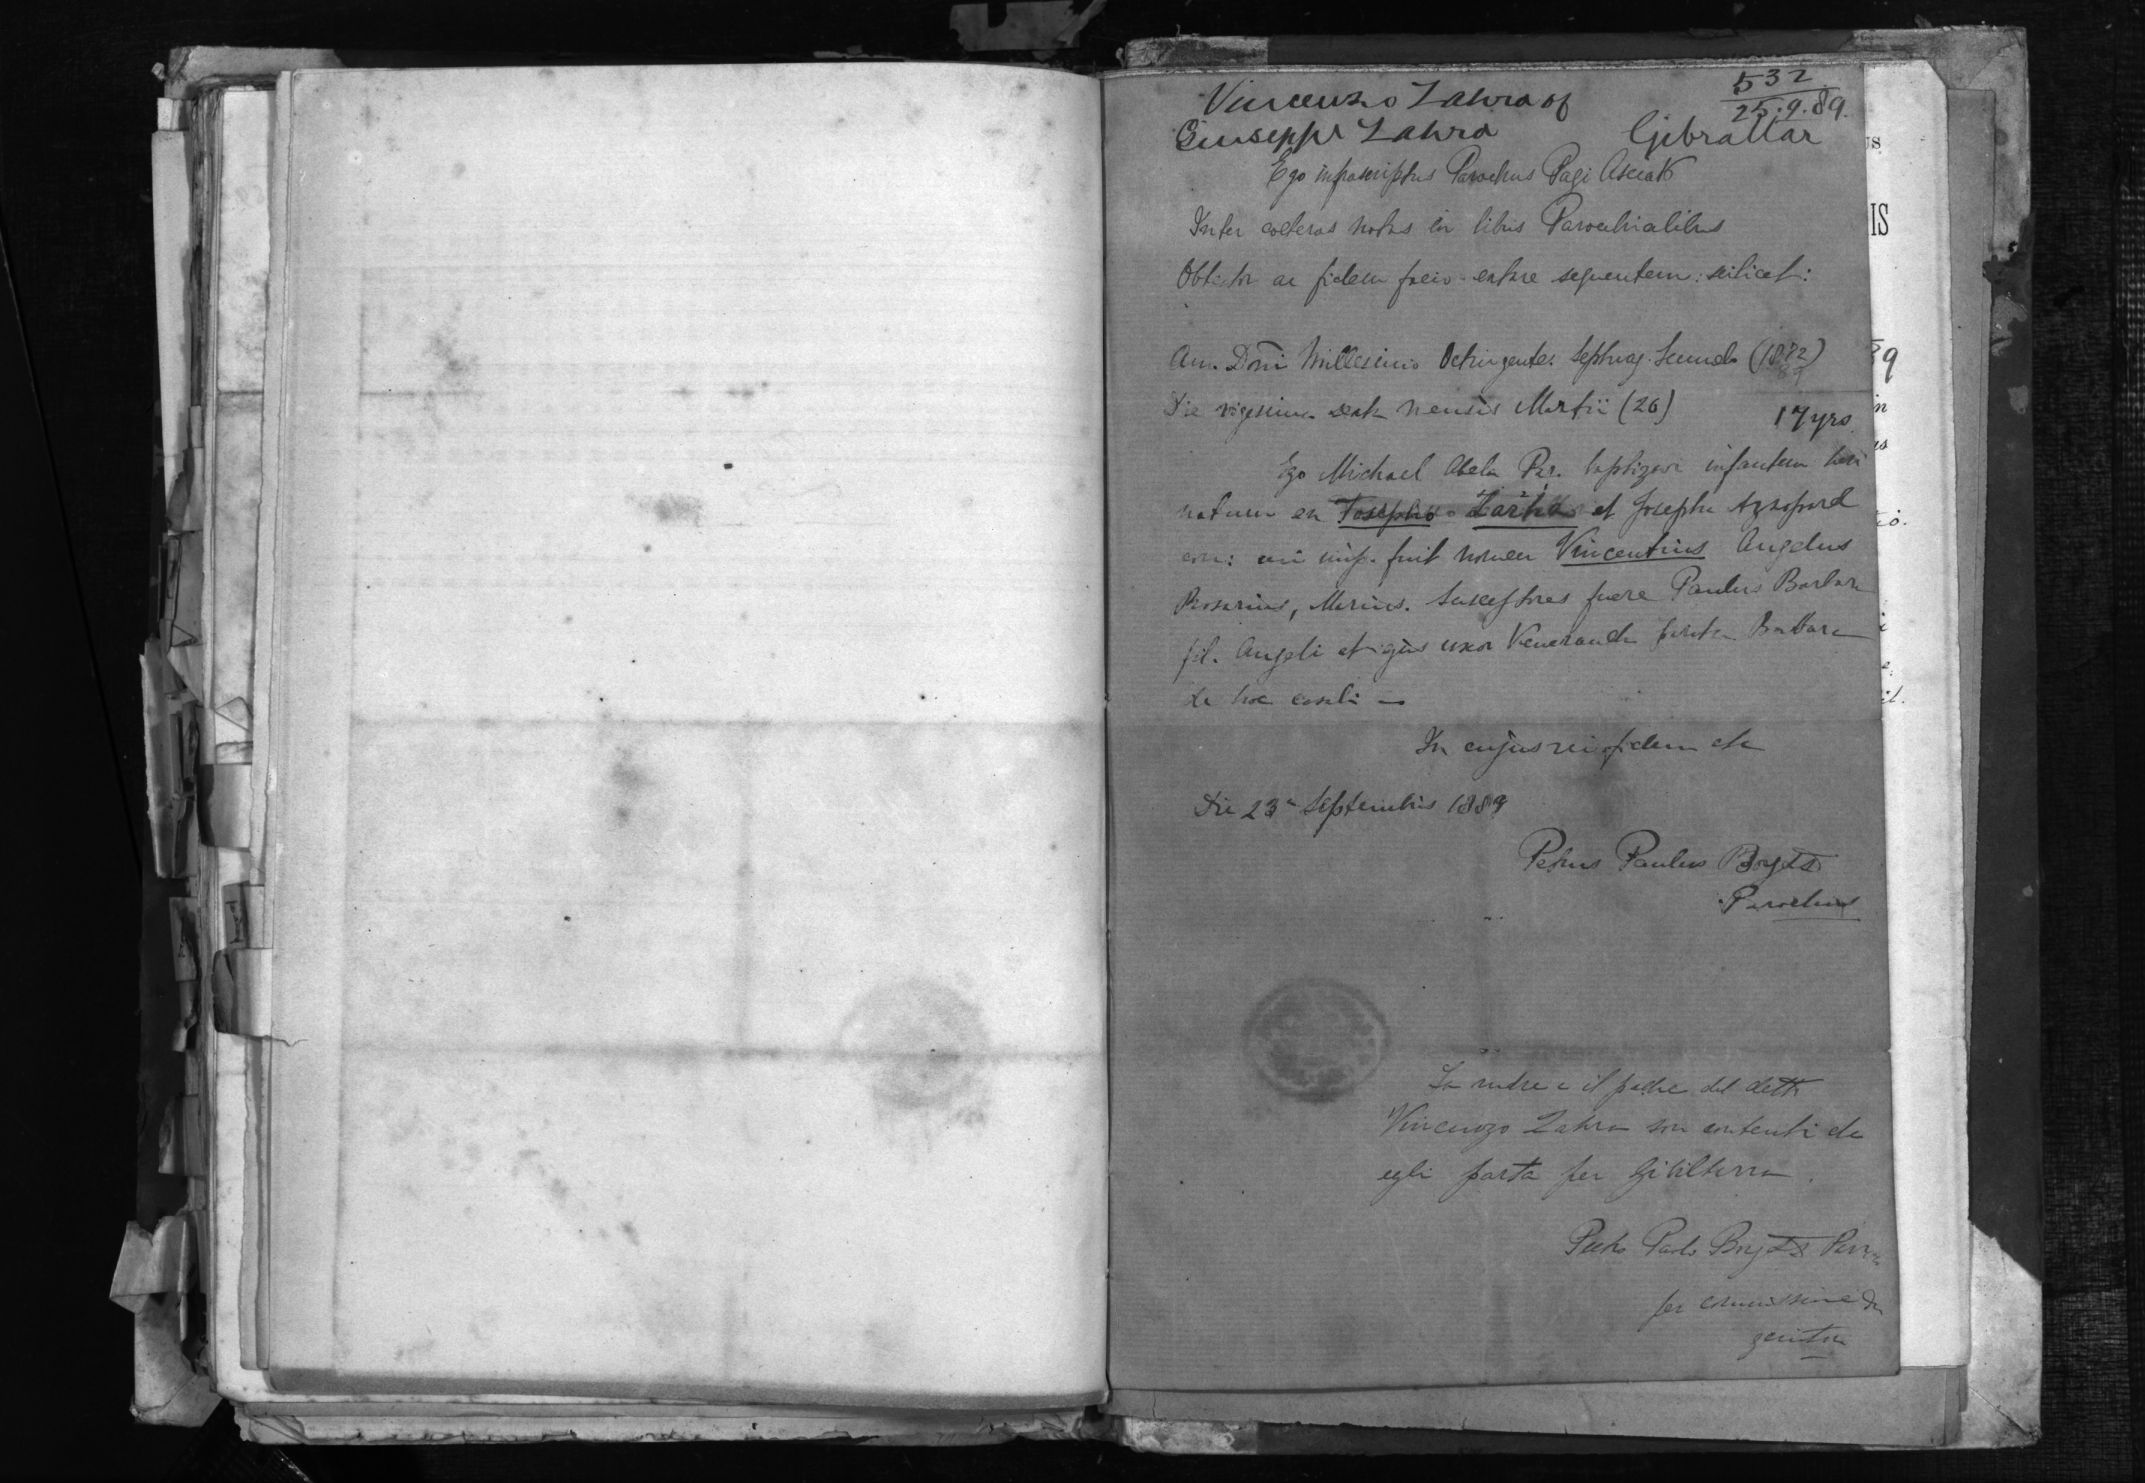 532
25.9.89.
Vincenzo Zahra of
Giuseppe Zahra Gibraltar
Ego infrascriptus Parochus Pagi Asciak
Inter coeteras notas in libris Parochialibus
Obtestor ac fidem facio extare sequentem: scilicet:
Ann. Dñi Millesimo Octingentes. Septuag. Secundo (1872)
89
Die vigesima sexta mensis Martii (26)
17 yrs
Ego Michael Abela Par. baptizavi infantem heri
natum ex Josepho Zarha et Josepha Azzopard
con: cui imp. fuit nomen Vincentius Angelus
Rosarius, Marius. Susceptores fuere Paulus Barbara
fil. Angeli et ejus uxor Veneranda Barbara
de hoc casali
In cujus rei fidem etc
Die 23a Septembris 1889
Petrus Paulus Borg
Parochus
La madre e il padre del detto
Vincenzo Zahra son contenti che
egli parta per Gibilterra.
Pietro Paolo Borg
per commissione dei
genitori
IS